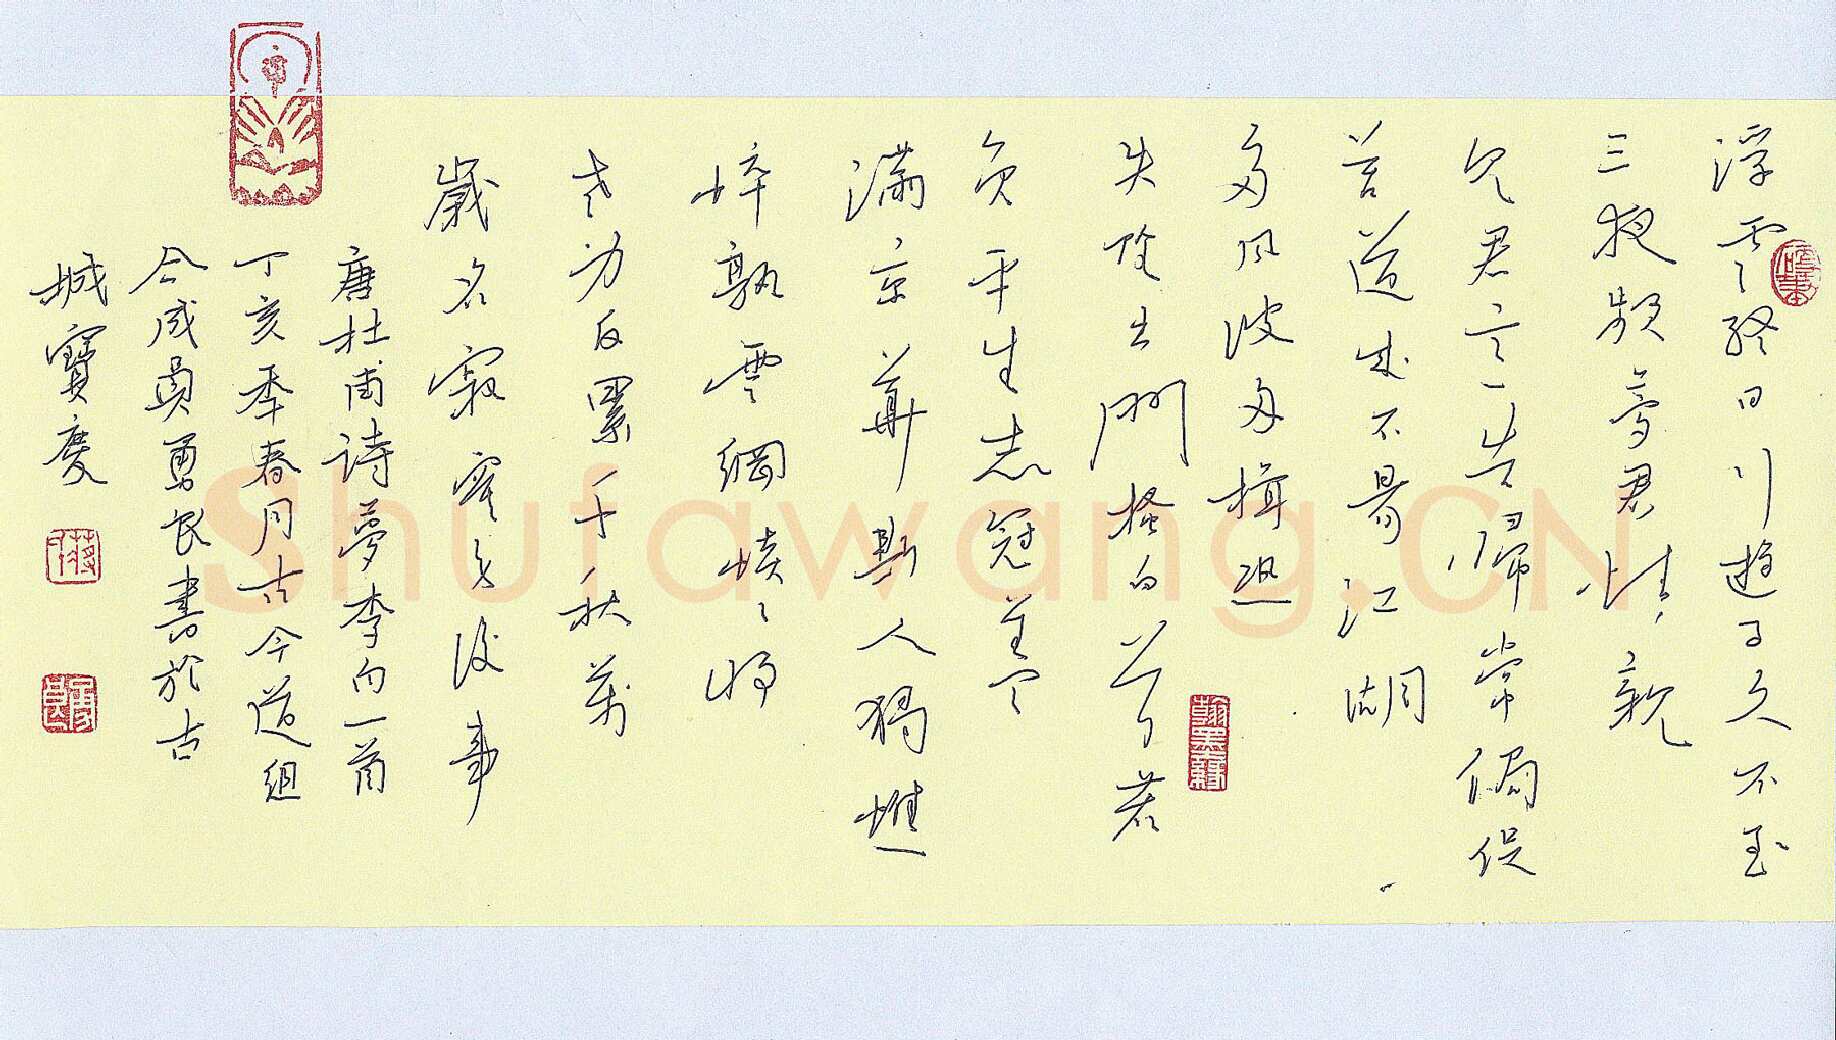 浮雲終日行遊子久不至
三夜頻夢君情親
見君意告歸常侷促
苦道来不易江湖
多風波舟楫恐
失墜出門搔白首若
負平生志冠盖
滿京華斯人獨憔
悴孰雲網恢々将
老身反累千秋萬
歲名寂寞身後事
唐杜甫詩夢李白一首
丁亥季春月古今道組
合成員勇良書於古
城寶慶
翰墨緣
Shufawang.CN